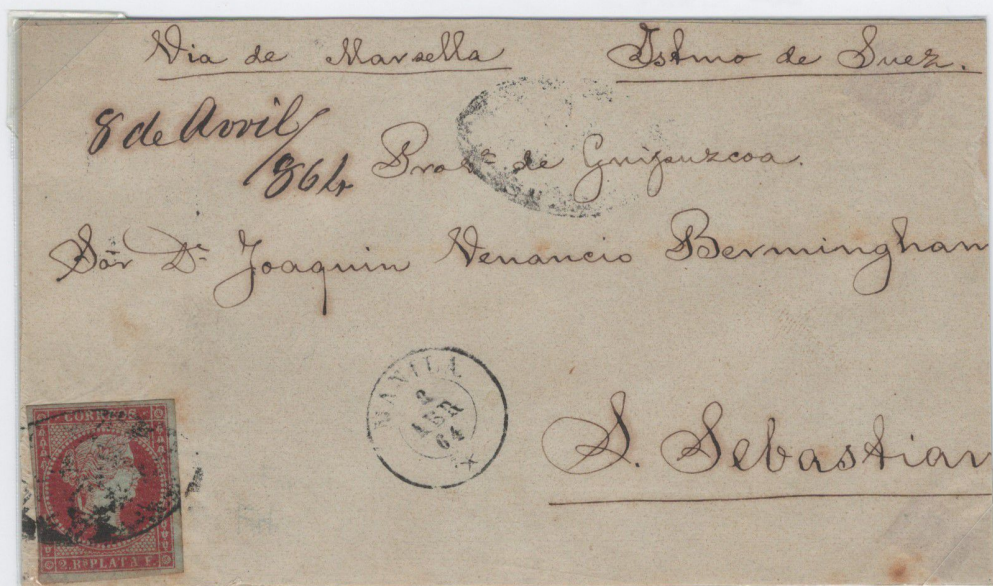 Via de Marsella Istmo de Suez.
8 de Avril/
864
Prov.ª de Guipuzcoa.
Sór D.n Joaquin Venancio Bermingham
MANILA
ABR
64
S. Sebastian
CORREOS.
2. Rs PLATA F.